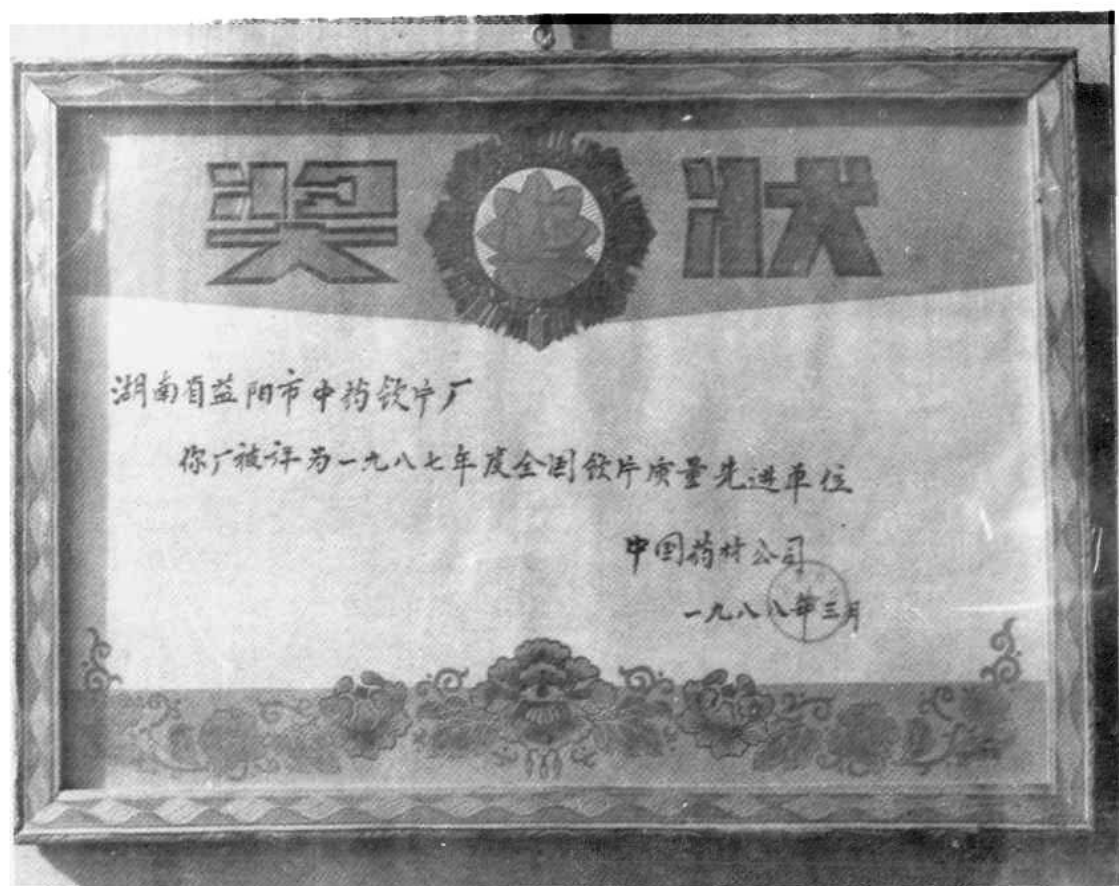 奖状
湖南省益阳市中药饮片厂
你厂被评为一九八七年度全国饮片质量先进单位
中国药材公司
一九八八年三月